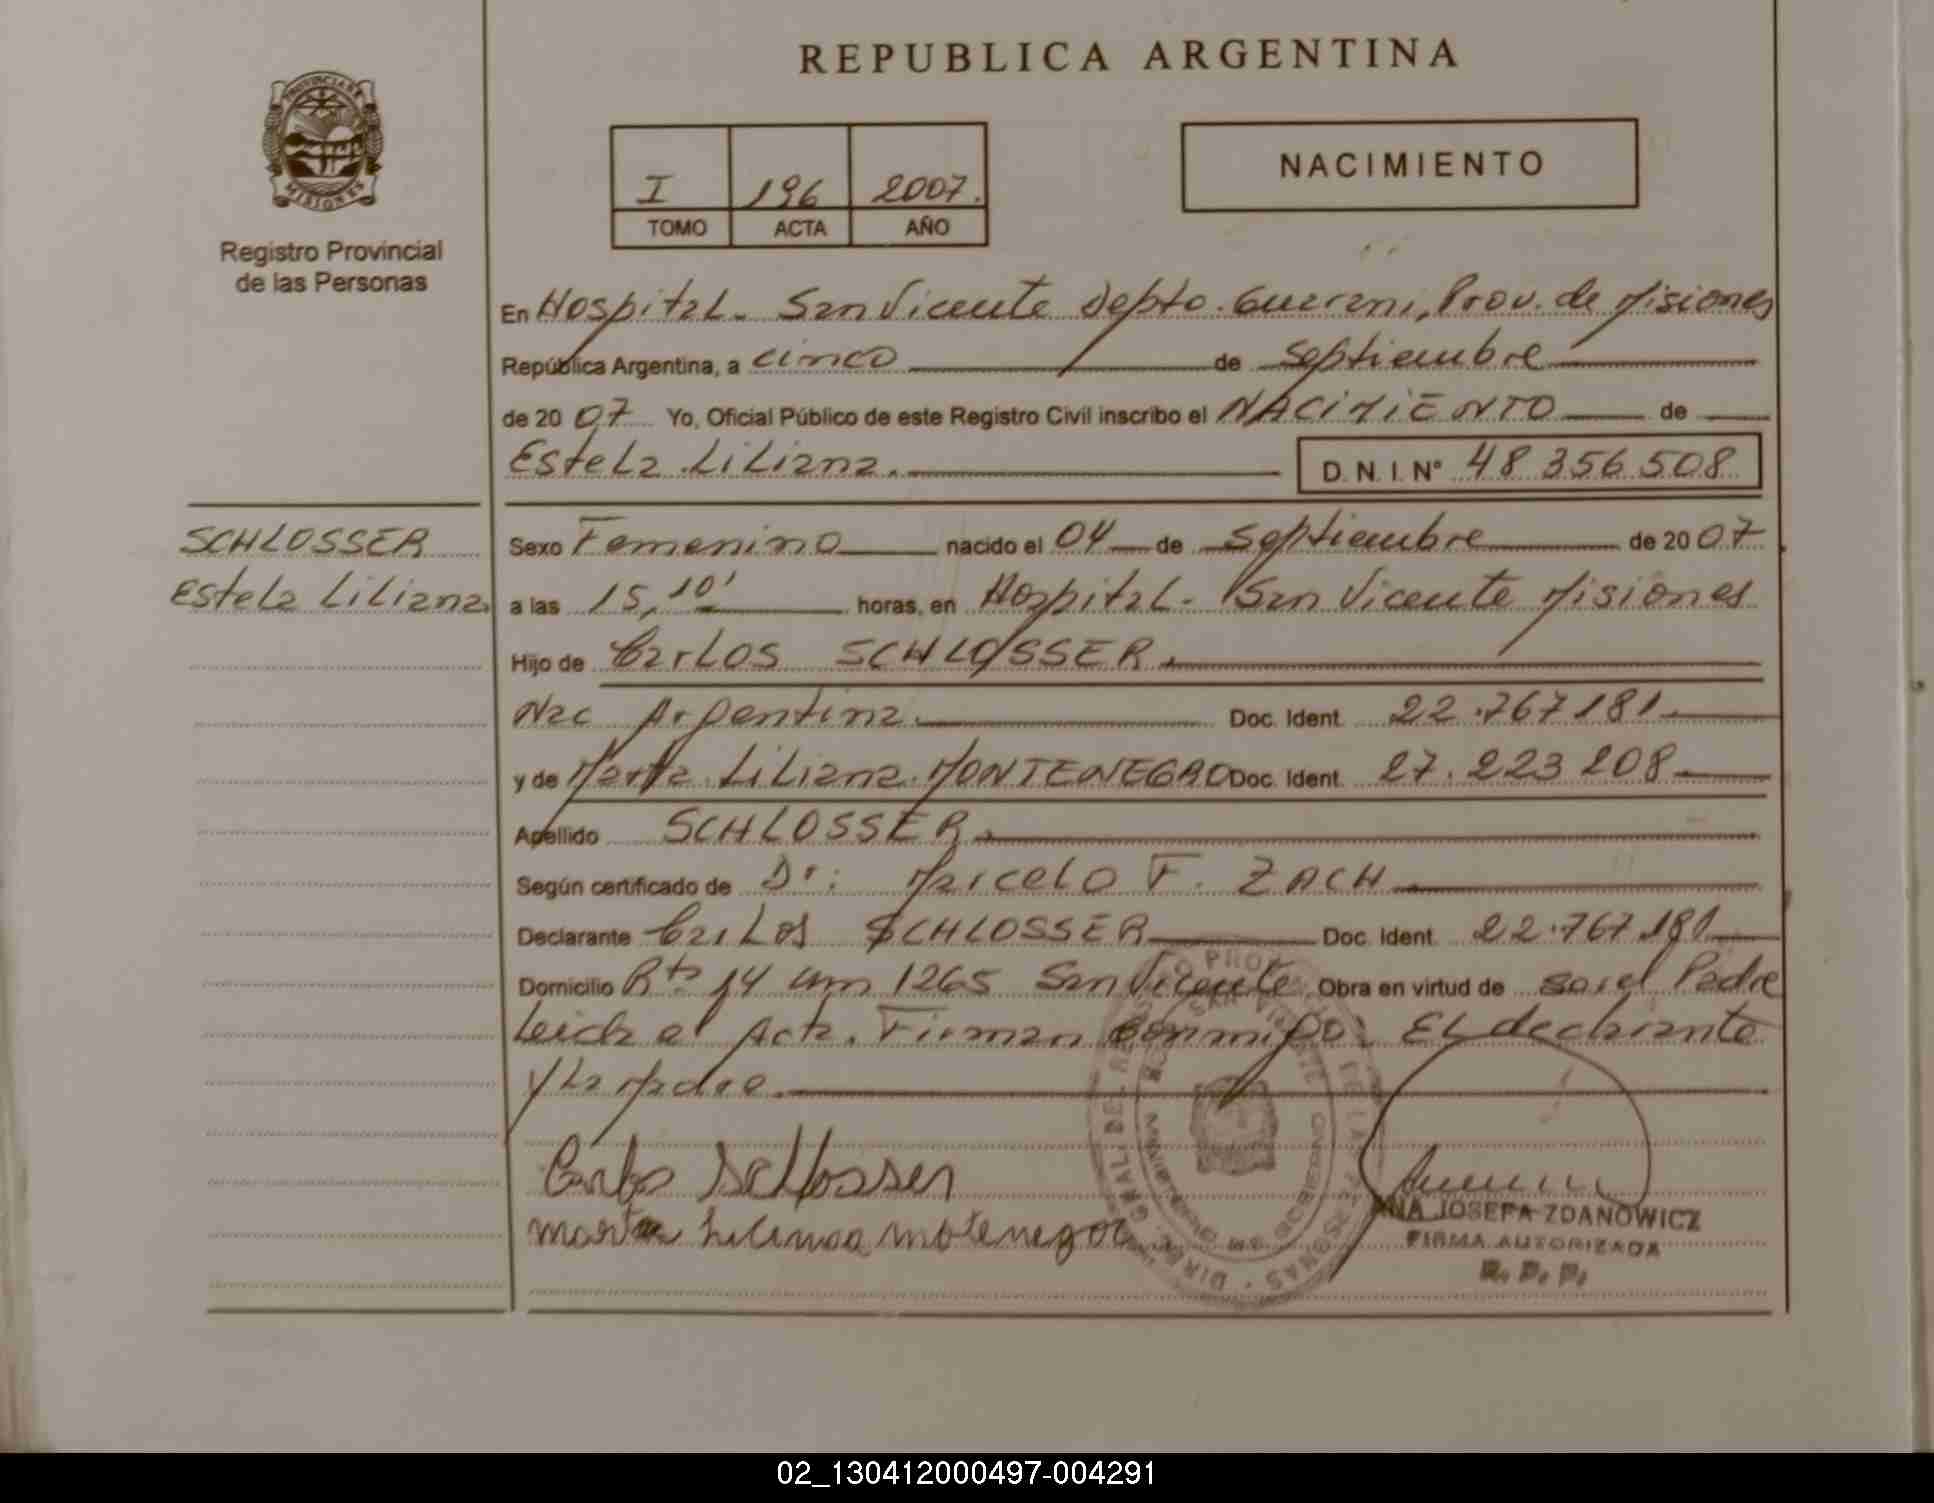 REPUBLICA ARGENTINA
PROVINCIA DE
MISIONES
Registro Provincial
de las Personas
I 196 2007.
TOMO ACTA AÑO
NACIMIENTO
En Hospital - San Vicente Depto. Guarani, Prov. de Misiones
República Argentina, a cinco de Septiembre
de 2007 Yo, Oficial Público de este Registro Civil inscribo el NACIMIENTO de
Estela Liliana. D. N. I. N° 48 356 508
SCHLOSSER
Estela Liliana.
Sexo Femenino nacido el 04 de Septiembre de 2007
a las 15,10' horas, en Hospital - San Vicente Misiones
Hijo de Carlos SCHLOSSER.
Nac Argentina. Doc. Ident. 22.767 181
y de Marta Liliana MONTENEGRO Doc. Ident. 27.223 208
Apellido SCHLOSSER.
Según certificado de Dr: Marcelo F. ZACH
Declarante Carlos SCHLOSSER Doc. Ident. 22.767.181
Domicilio Rta 14 km 1265 San Vicente Obra en virtud de ser el Padre
Leida el Acta. Firman Conmigo: EL declarante
y La Madre.
Carlos Schlosser
marta liliana motenegro
ANA JOSEFA ZDANOWICZ
FIRMA AUTORIZADA
R. P. P.
02_130412000497-004291